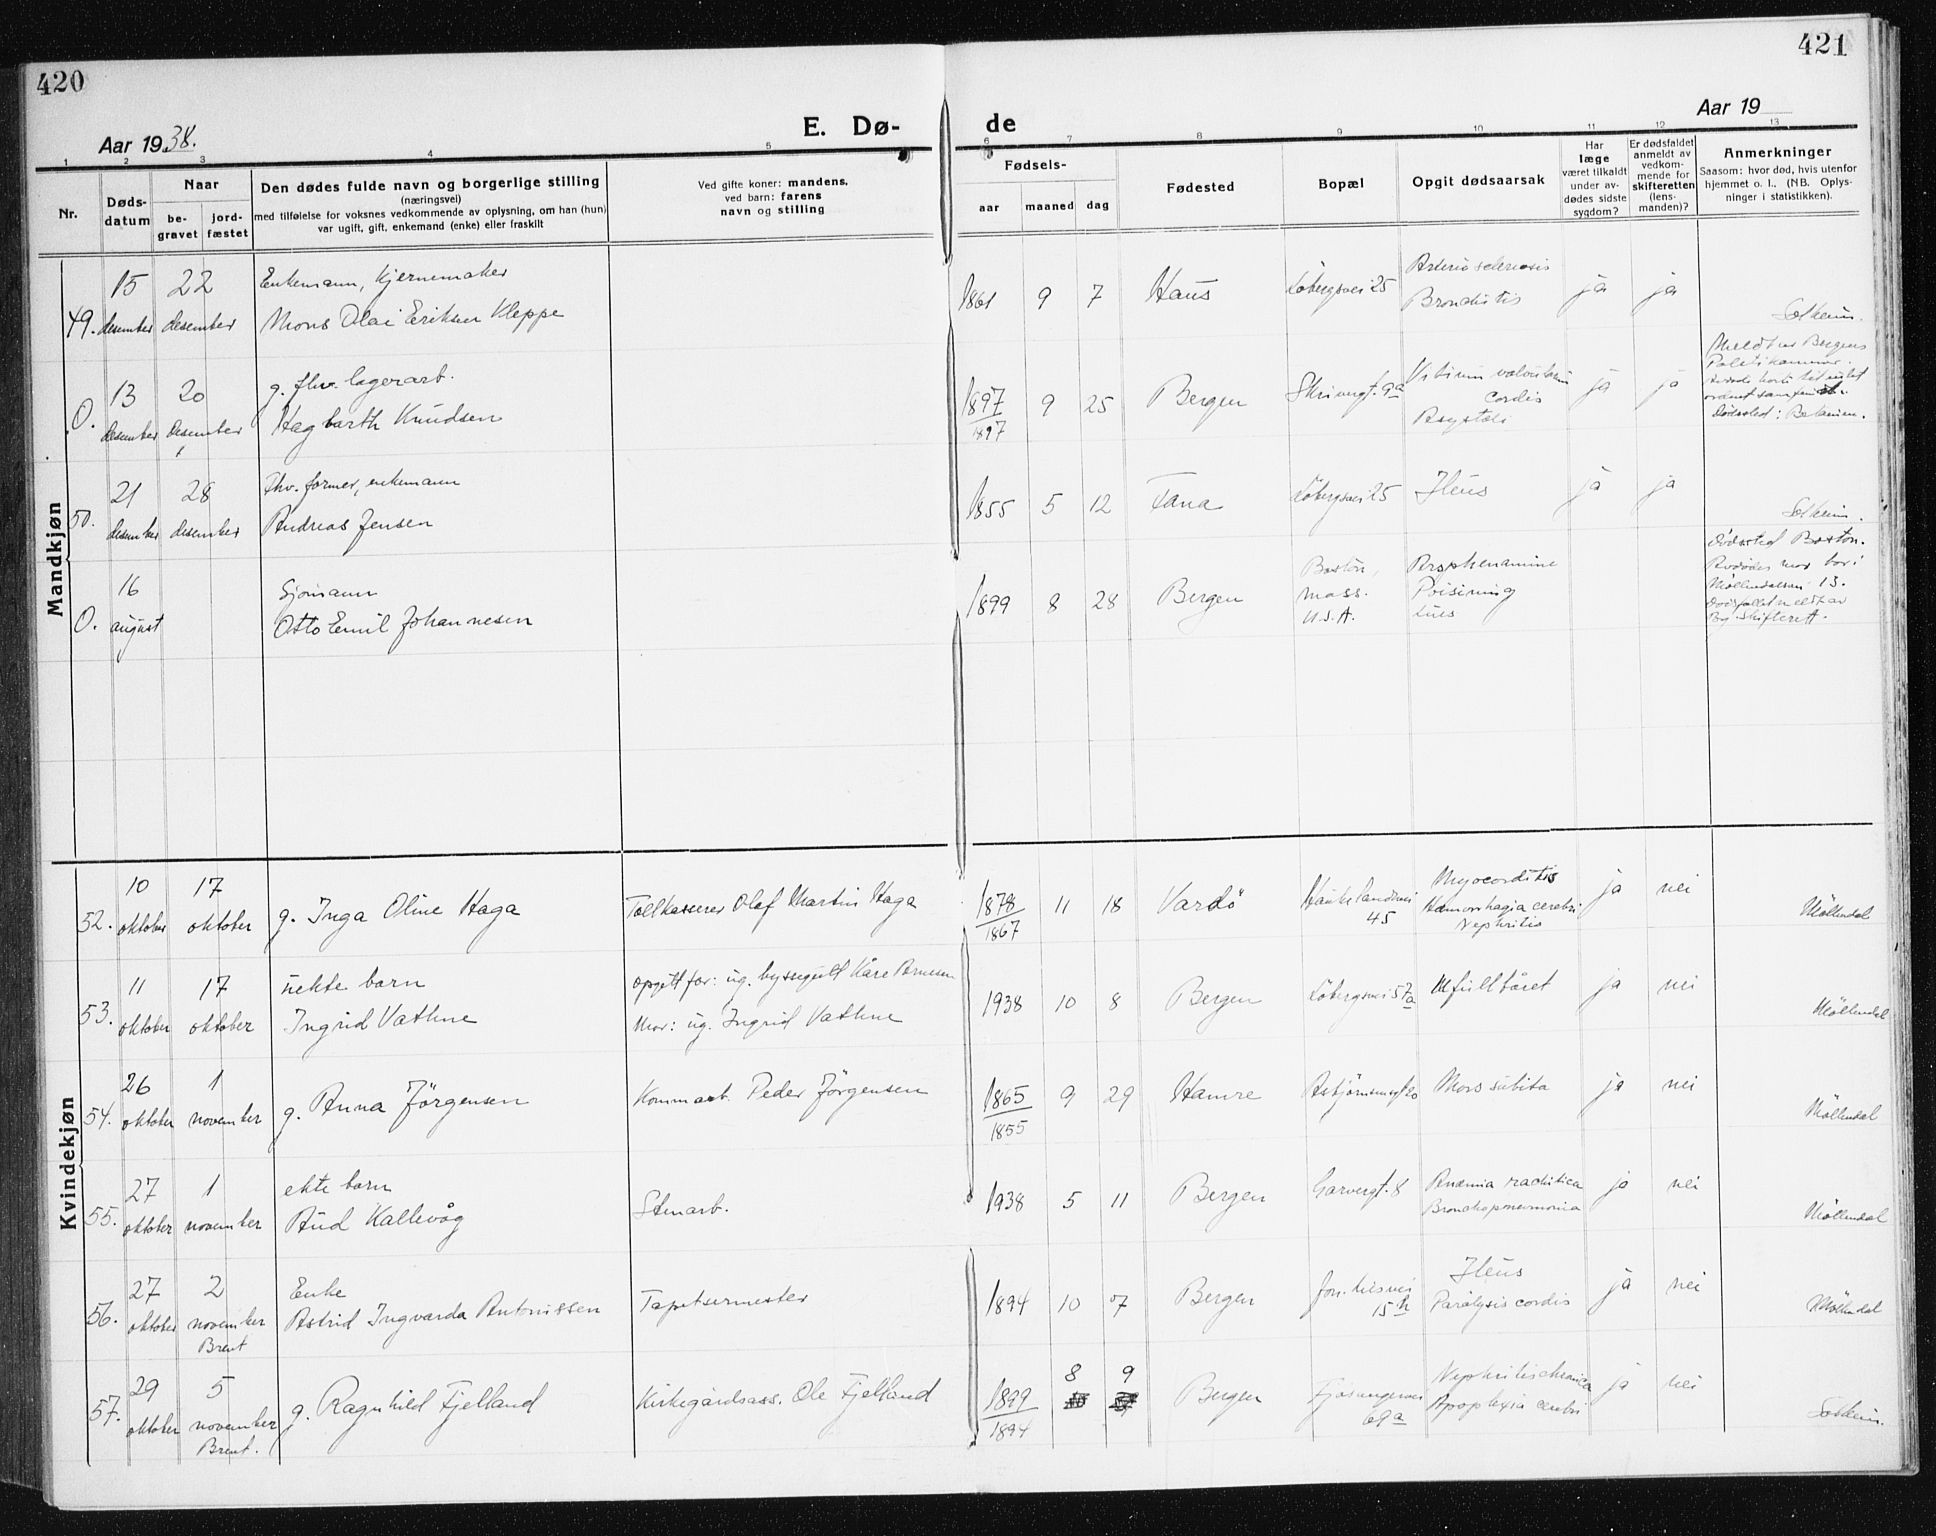 420
421
Aar 1938.
E. Dø-
de
Aar 19
1 2 3 4 5 6 7 8 9 10 11 12 13
Nr.
Døds-
datum
Naar
be-
gravet
jord-
fæstet
Den dødes fulde navn og borgerlige stilling
(næringsvei)
med tilføielse for voksnes vedkommende av oplysning, om han (hun)
var ugift, gift, enkemand (enke) eller fraskilt
Ved gifte koner: mandens,
ved barn: farens
navn og stilling
Fødsels-
aar maaned dag
Fødested
Bopæl
Opgit dødsaarsak
Har
læge
været tilkaldt
under av-
dødes sidste
sygdom?
Er dødsfaldet
anmeldt av
vedkom-
mende for
skifteretten
(lens-
manden)?
Anmerkninger
Saasom: hvor død, hvis utenfor
hjemmet o. l., (NB. Oplys-
ninger i statistikken).
Mandkjøn
49. 15 desember 22 desember
Enkemann, Kjernemaker
Mons Olai Eriksen Kleppe
1861 9 7 Haus Løbergsvei 25
Arterio sclerosis
Bronchitis
ja ja
Solheim.
0. 13 desember 20 desember
g. fhv. lagerarb.
Hagbarth Knudsen
1897
1897
9 25 Bergen Skriverg. 9a
Vitium valvulorum
cordis
Asystoli
ja ja
Meldt av Bergens
Politikammer.
Dødssted: Betanien.
50. 21 desember 28 desember
Fhv. former, enkemann
Andreas Jensen
1855 5 12 Fana Løbergsvei 25 Ileus ja ja
Solheim.
0. 16 august
Sjømann
Otto Emil Johannesen
1899 8 28 Bergen
Boston,
Mass.
U.S.A.
Arsphenamine
Poisining
Lues
Dødssted Boston.
Avdødes mor bor i
Møllendalsvn 13.
Dødsfallet meldt av
Bg. Skifterett.
Kvindekjøn
52. 10 oktober 17 oktober
g. Inga Oline Haga
Tollkasserer Olaf Martin Haga
1878
1867
11 18 Vardö
Haukelandsvei
45
Myocorditis
Hæmorrhagia cerebri
Nephritis
ja nei
Møllendal
53. 11 oktober 17 oktober
uekte barn
Ingrid Vathne
opgitt far: ug. byssegutt Kåre Arnesen
Mor: ug. Ingrid Vathne
1938 10 8 Bergen Løbergsvei 57a Ufullbåret ja nei
Møllendal
54. 26 oktober 1 november
g. Anna Jörgensen
Kommarb. Peder Jörgensen
1865
1855
9 29 Hamre Asbjörnsensgt 20 Mors subita ja nei
Møllendal
55. 27 oktober 1 november
ekte barn
Aud Kallevåg
Stenarb.
1938 5 11 Bergen Garvergt. 8
Anæmia rachitica
Bronchopneumonia
ja nei
Møllendal
56. 27 oktober 2 november
Brent
Enke
Astrid Ingvarda Antonissen
Tapetsermester
1894 10 7 Bergen
Jon. Liesvei
15h
Ileus
Paralysis cordis
ja nei
Møllendal
57. 29 oktober 5 november
Brent.
g. Ragnhild Fjelland
Kirkegårdsass. Ole Fjelland
1899
1894
8 9 Bergen
Fjösangervei
69a
Nephritis chronica
Apoplexia cerebri
ja nei
Solheim.